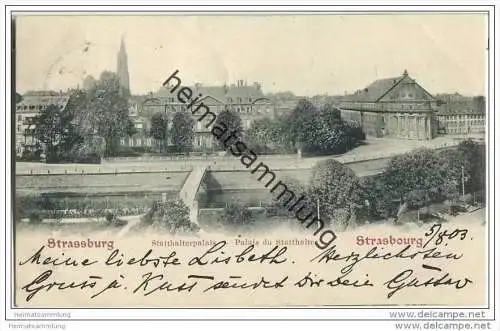 heimatsammlung.de
Strassburg
Statthalterpalais - Palais du Statthalter
Strasbourg
5/8.03
Meine liebste Lisbeth. Herzlichsten
Gruss u. Kuss sendet dir dein Gustav
heimatsammlung.de
heimatsammlung.de